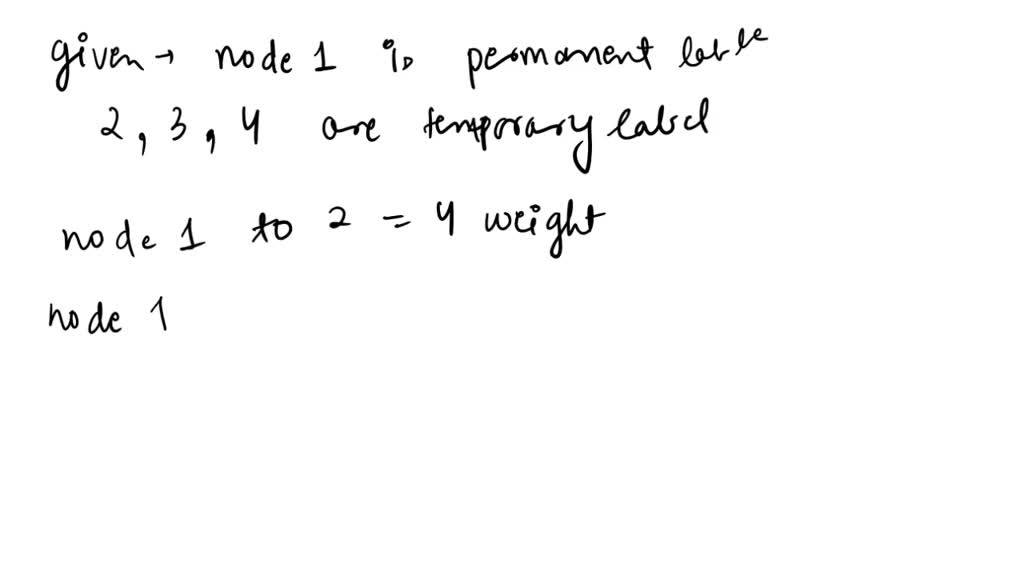 given → node 1 is permanent lable
2, 3, 4 are temporary label
node 1 to 2 = 4 weight
node 1